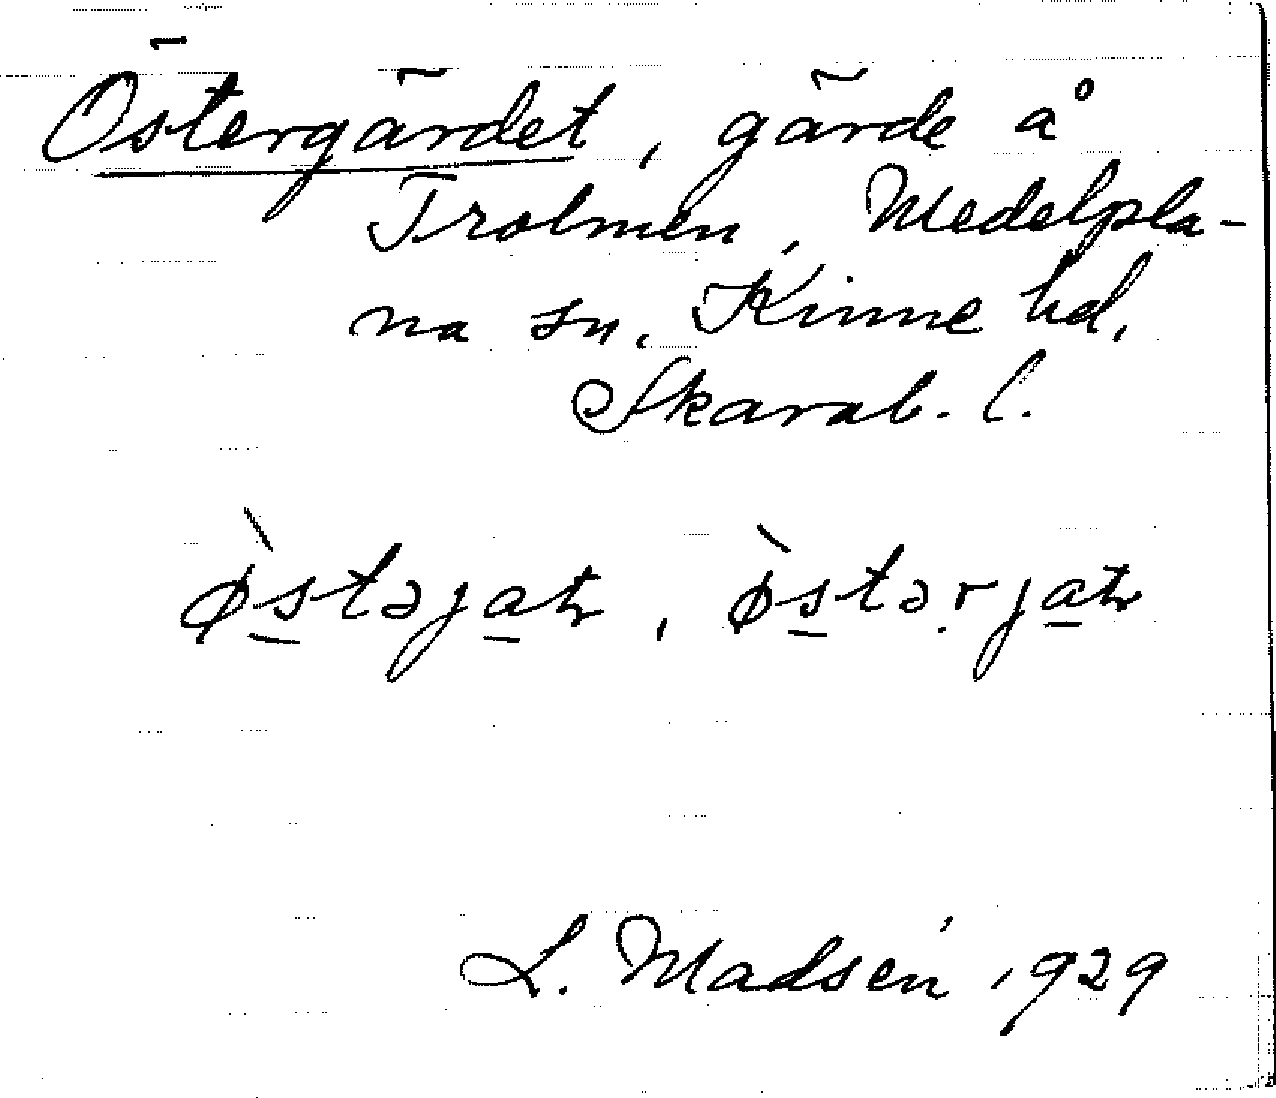 Östergärdet, gärde å
Trolmen, Medelpla-
na sn, Kinne hd,
Skarab. l.
ø̀stəjat, ø̀stərjat
L. Madsén 1929